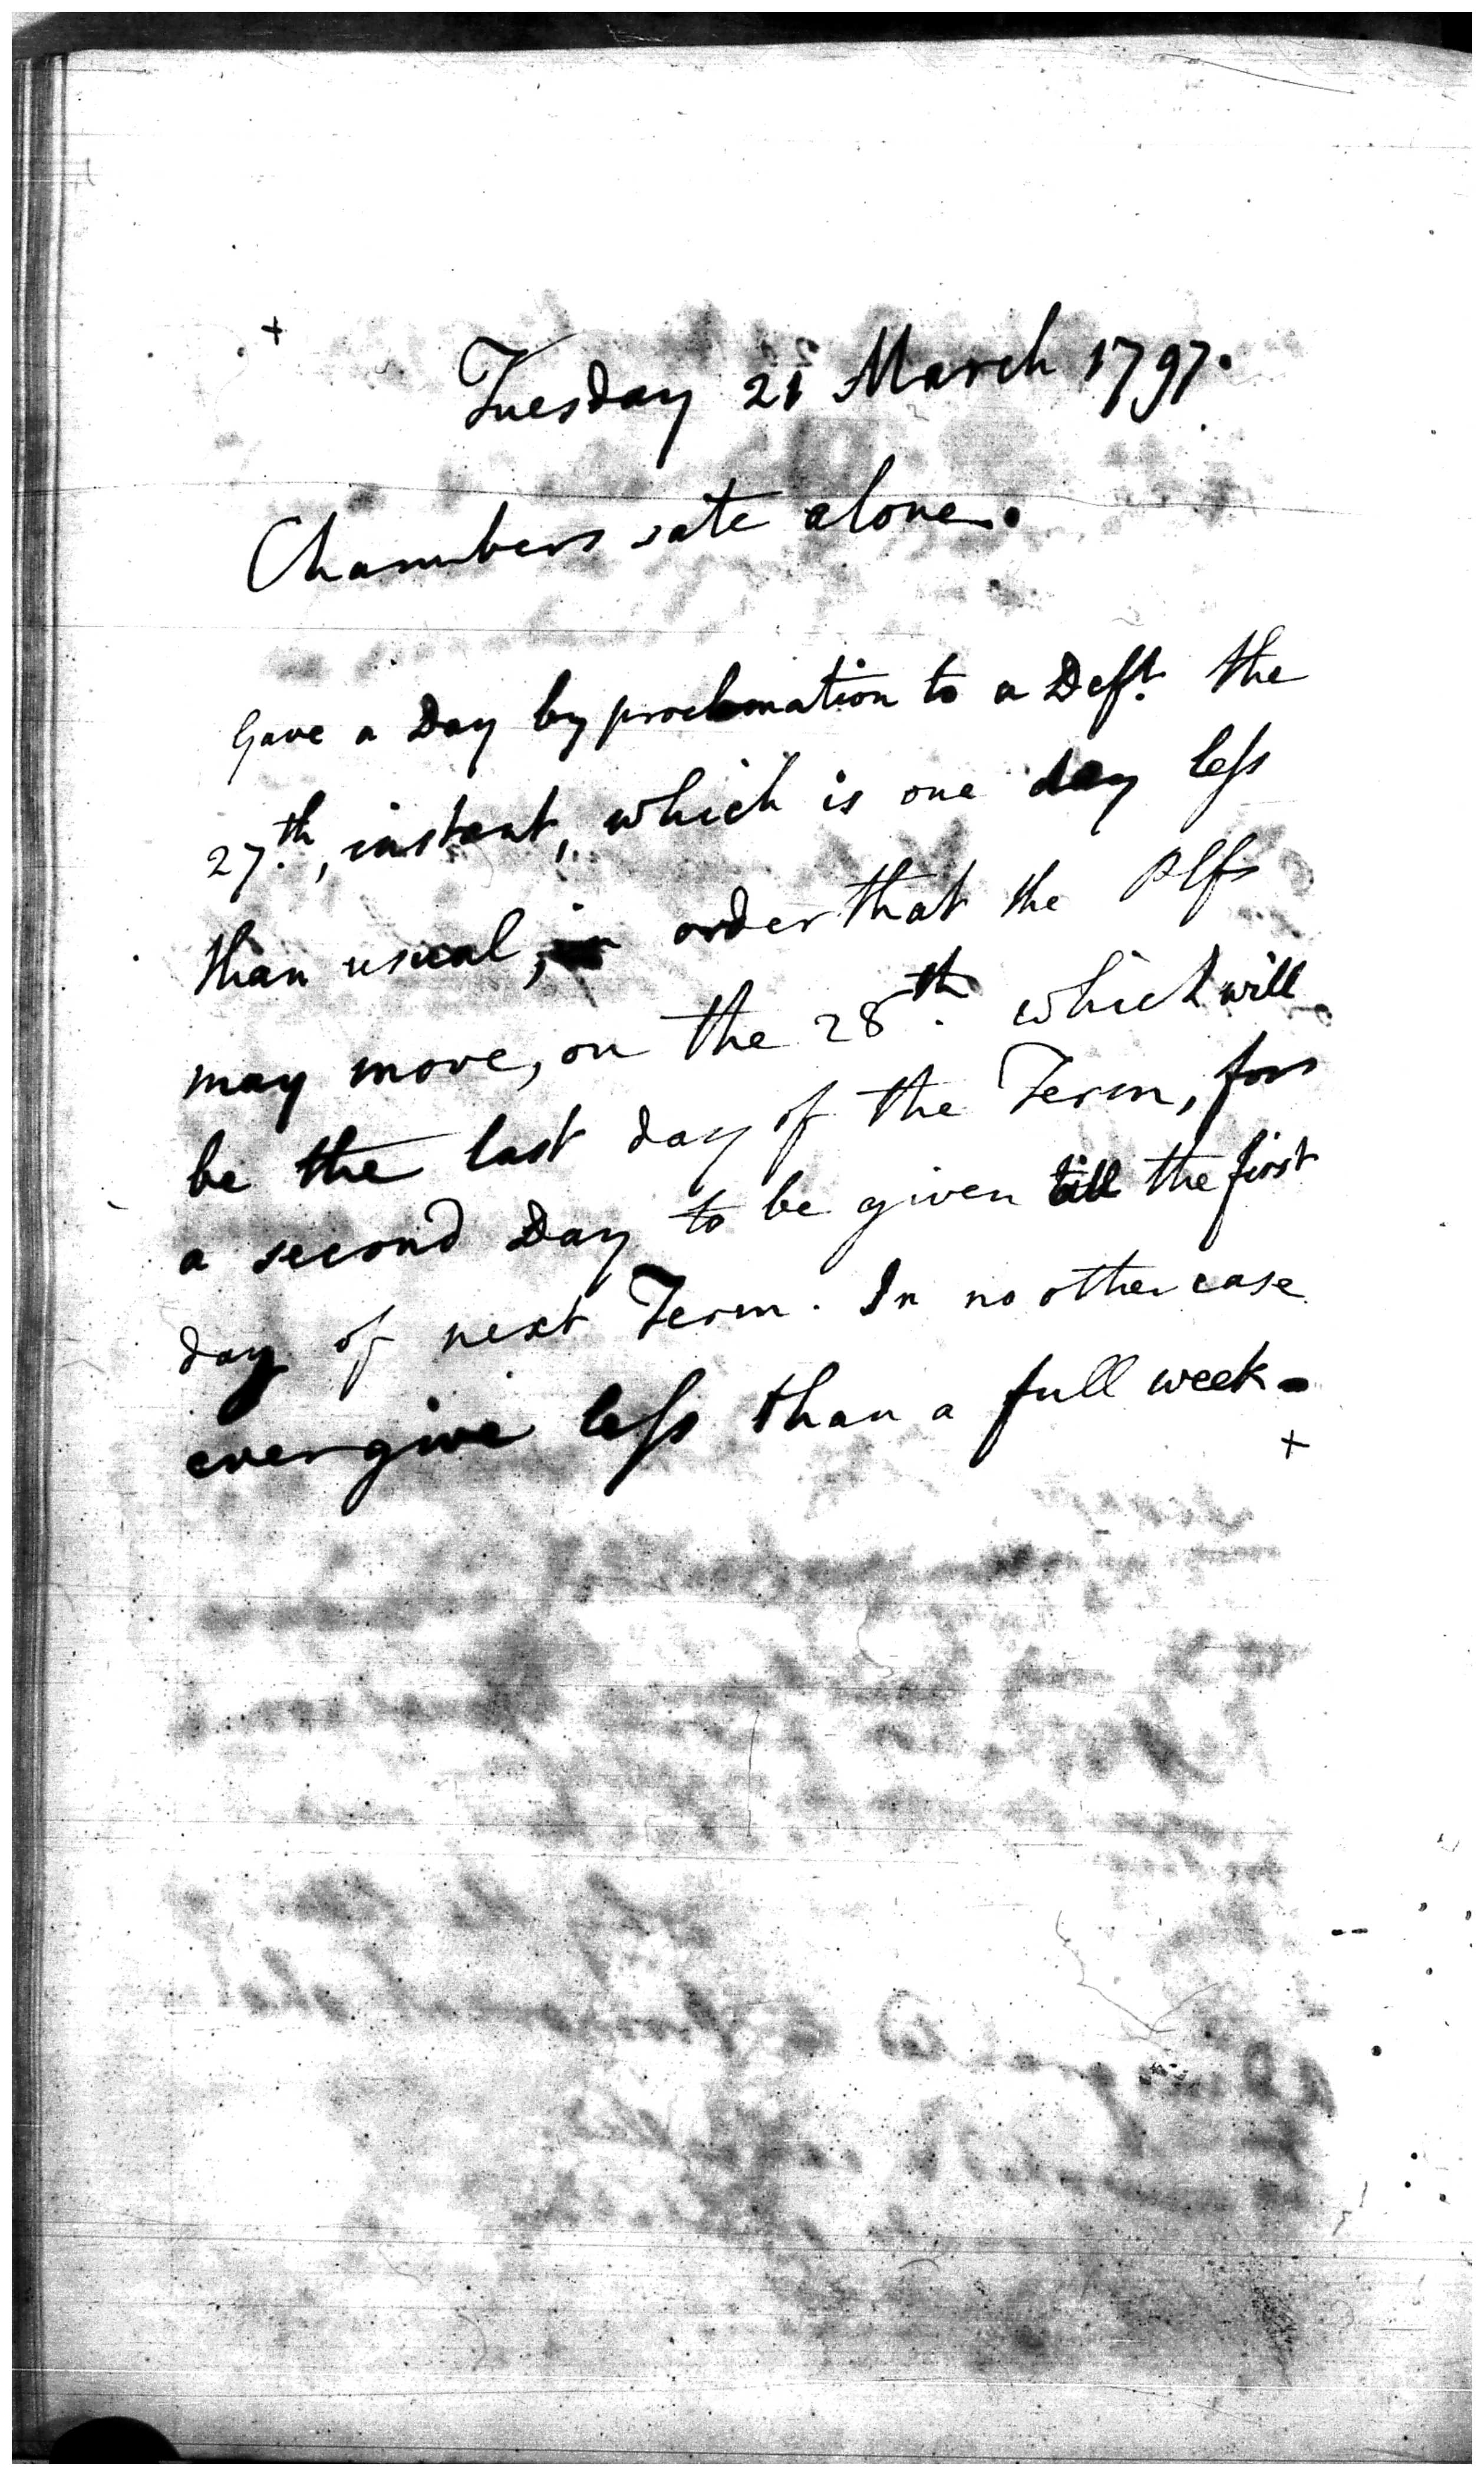 +
Tuesday 21 March 1797.
Chambers sate alone.
Gave a Day by proclamation to a Deft. the
27.th, instant, which is one day less
than usual, in order that the Plfs
may move, on the 28th. which will
be the last day of the Term, for
a second Day to be given till the first
day of next Term. In no other case
ever give less than a full week.
+